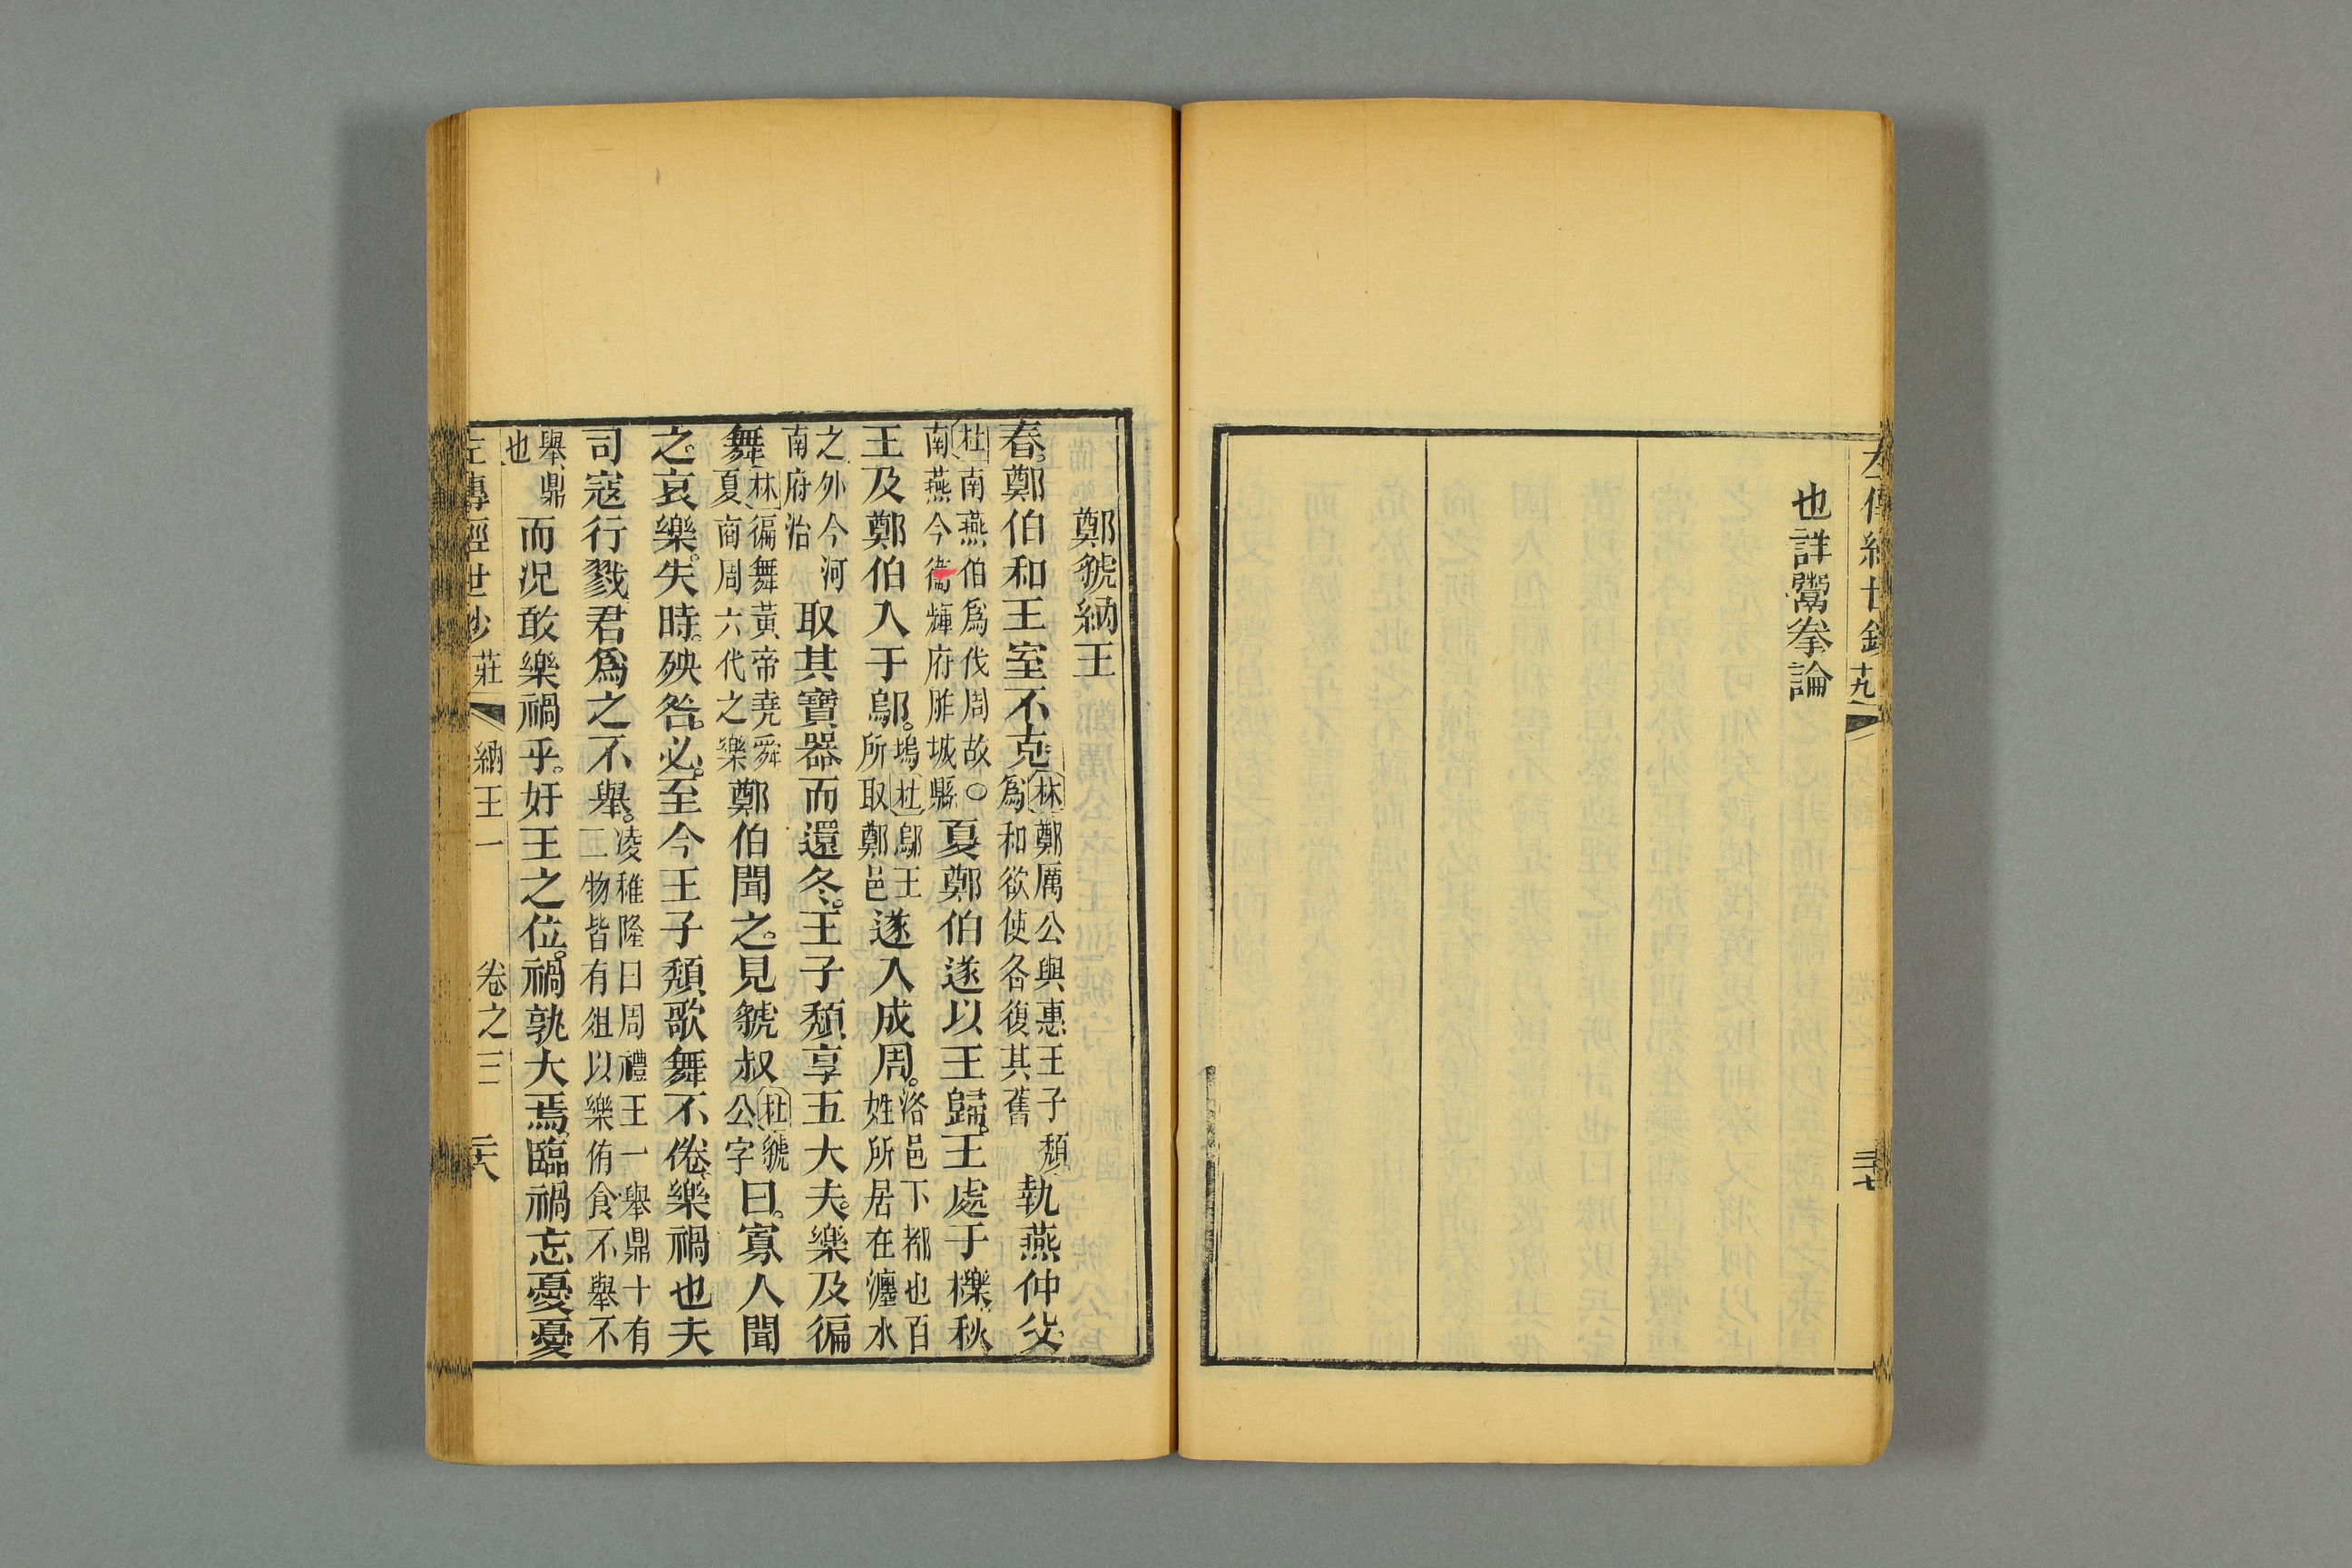 左傳經世鈔 十九 三十七
也詳鬻拳論
鄭虢納王
春鄭伯和王室不克林鄭厲公與惠王子頹爲和欲使各復其舊執燕仲父
杜南燕伯爲伐周故○南燕今衞輝府胙城縣夏鄭伯遂以王歸王處于櫟秋
王及鄭伯入于鄔塢杜鄔王所取鄭邑遂入成周洛邑下都也百姓所居在瀍水
之外今河南府治取其寶器而還冬王子頹享五大夫樂及徧
舞林徧舞黃帝堯舜夏商周六代之樂鄭伯聞之見虢叔杜虢公字曰寡人聞
之哀樂失時殃咎必至今王子頹歌舞不倦樂禍也夫
司寇行戮君爲之不舉凌稚隆曰周禮王一舉鼎十有二物皆有俎以樂侑食不舉不
舉鼎也而況敢樂禍乎奸王之位禍孰大焉臨禍忘憂憂
左傳經世鈔 莊 納王一 卷之三 三十八